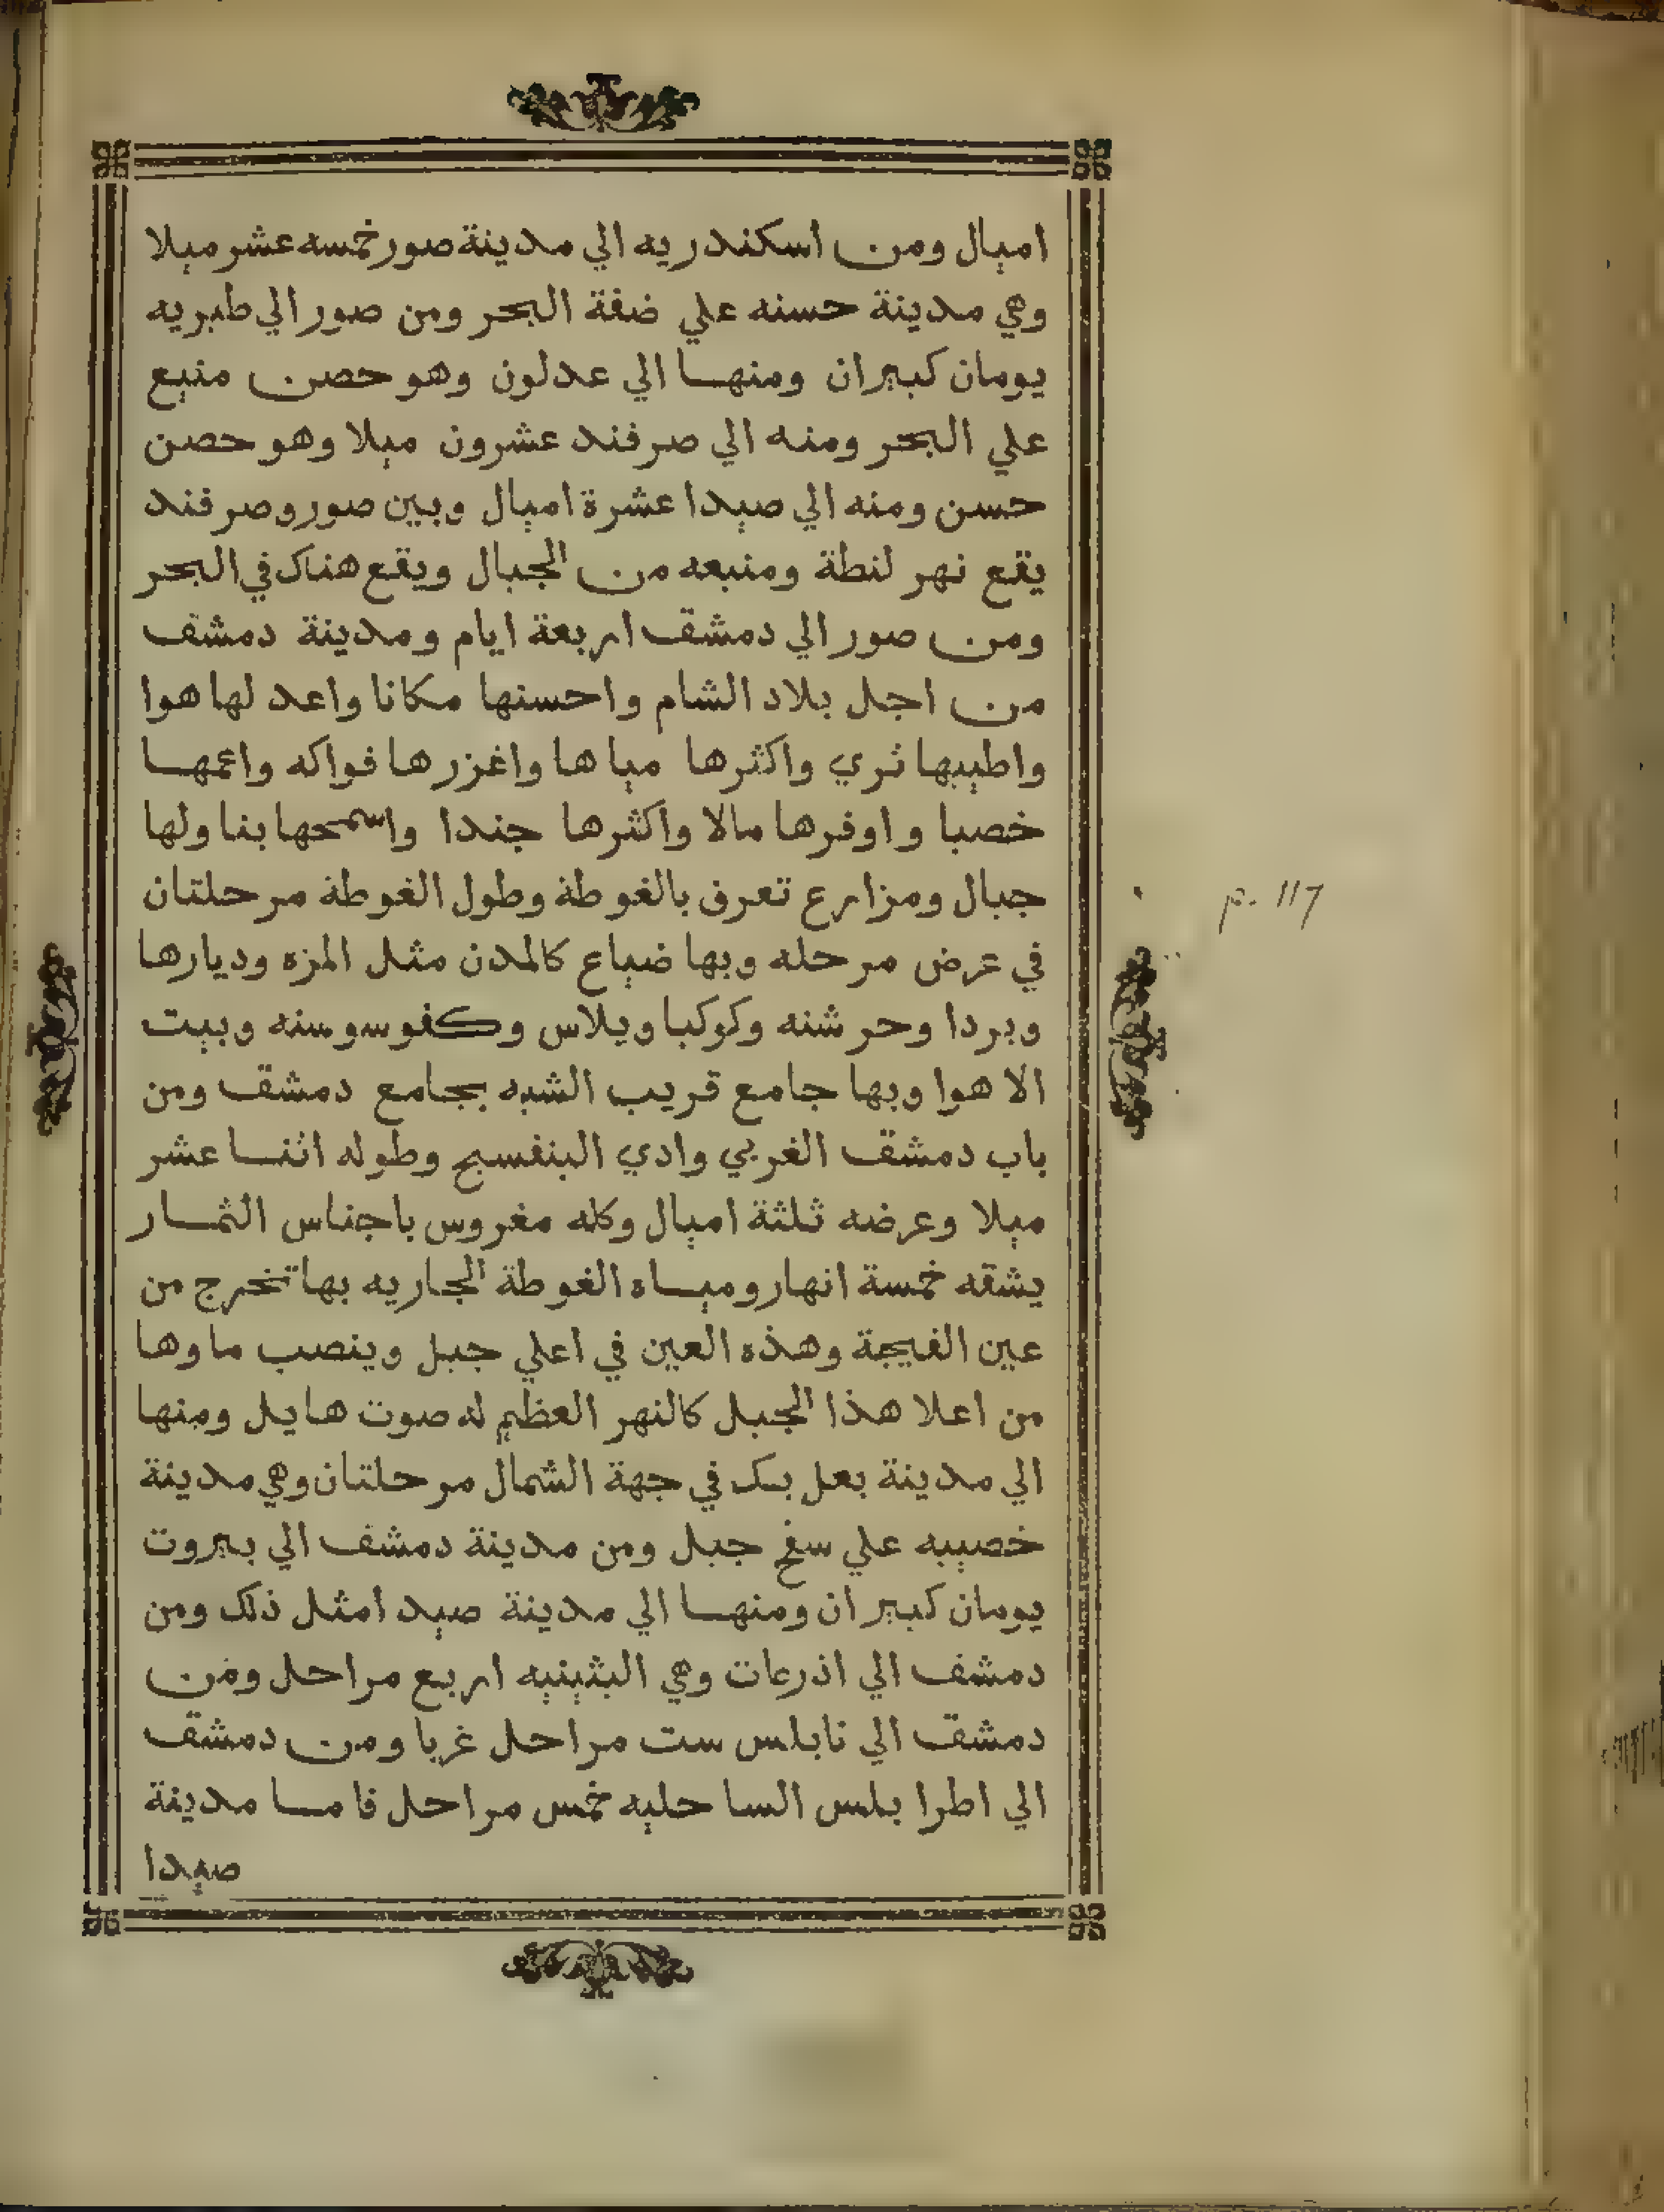 اميال ومن اسكندريه الي مدينة صور خمسه عشر ميلا
وهي مدينة حسنه علي ضفة البحر ومن صور الي طبريه
يومان كبيران ومنها الي عدلون وهو حصن منيع
علي البحر ومنه الي صرفند عشرون ميلا وهو حصن
حسن ومنه الي صيدا عشرة اميال وبين صور وصرفند
يقع نهر لنطة ومنبعه من الجبال ويقع هناك في البحر
ومن صور الي دمشق اربعة ايام ومدينة دمشق
من اجل بلاد الشام واحسنها مكانا واعد لها هوا
واطيبها ثري واكثرها مياها واغزرها فواكه واعمها
خصبا و اوفرها مالا واكثرها جندا واسمحها بنا ولها
جبال ومزارع تعرف بالغوطة وطول الغوطة مرحلتان
في عرض مرحله وبها ضياع كالمدن مثل المزه وديارها
وبردا وحرشنه وكوكبا وبلاس وكفوسوسنه وبيت
الاهوا وبها جامع قريب الشبه بجامع دمشق ومن
باب دمشق الغربي وادي البنفسج وطوله اثنا عشر
ميلا وعرضه ثلثة اميال وكله مغروس باجناس الثمار
يشقه خمسة انهار ومياه الغوطة الجاريه بها تخرج من
عين الفيجة وهذه العين في اعلي جبل وينصب ماوها
من اعلا هذا الجبل كالنهر العظيم له صوت هايل ومنها
الي مدينة بعل بك في جهة الشمال مرحلتان وهي مدينة
خصيبه علي سفح جبل ومن مدينة دمشق الي بيروت
يومان كبيران ومنها الي مدينة صيد امثل ذلك ومن
دمشق الي اذرعات وهي البثينيه اربع مراحل ومن
دمشق الي نابلس ست مراحل غربا ومن دمشق
الي اطرا بلس الساحليه خمس مراحل فاما مدينة
صيدا
p. 117